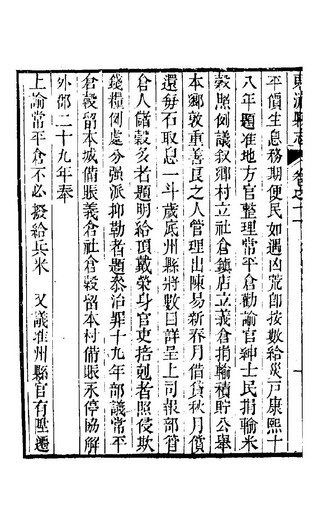 東流縣志 卷之十
平價生息務期便民如遇凶荒卽按數給災戸康熙十
八年題准地方官整理常平倉勸諭官紳士民捐輸米
穀照例議叙鄉村立社倉鎮店立義倉捐輸積貯公舉
本鄉敦重善良之人管理出陳易新春月借貸秋月償
還每石取息一斗歲底州縣將數目詳呈上司報部管
倉人儲穀多者題明給頂戴榮身官吏掊剋者照侵欺
錢糧例處分强派抑勒者題叅治罪十九年部議常平
倉穀留本城備賑義倉社倉穀留本村備賑永停協解
外郡二十九年奉
上諭常平倉不必撥給兵米 又議准州縣官有陞遷